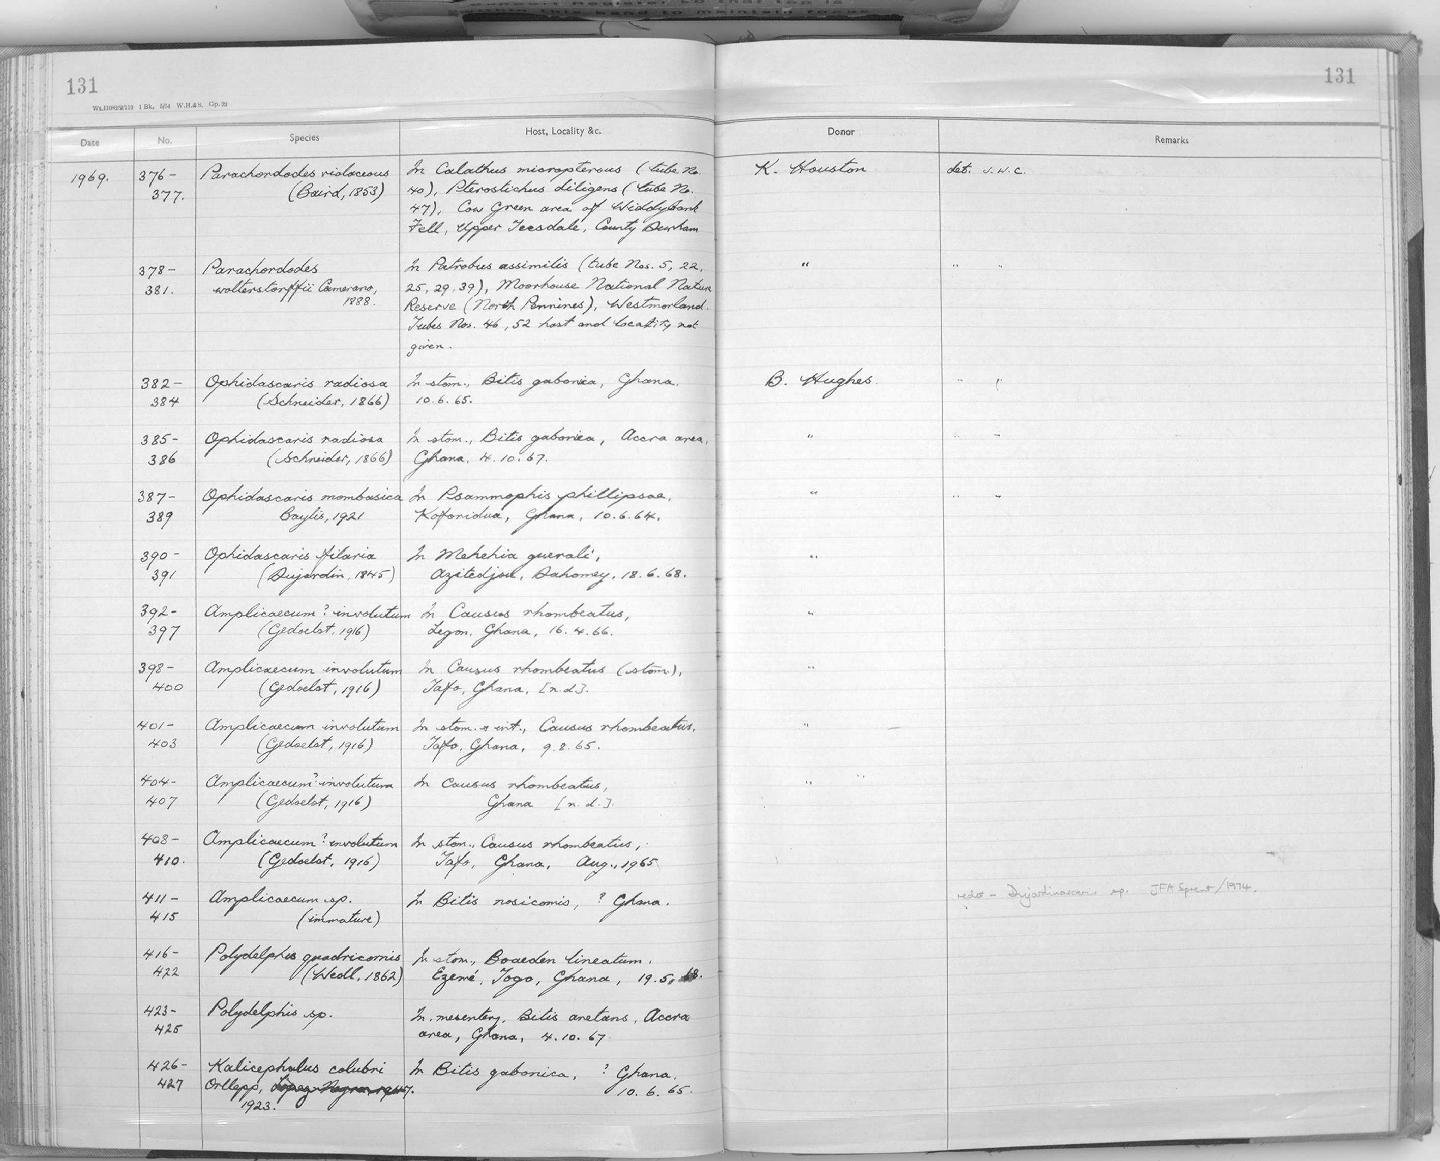 131
131
Wt.11098/9/710 1 Bk. 5/54 W.H.&S. Gp.29
Date No. Species Host, Locality &c. Donor Remarks
1969. 376- Parachordodes violaceous In Calathus micropterous (tube No. K. Houston det. J.W.C.
377. (Baird, 1853) 40), Pterostichus diligens (tube No.
47), Cow Green area of Widdybank
Fell, Upper Teesdale, County Durham
378- Parachordodes In Patrobus assimilis (tube Nos. 5, 22, " " "
381. wolterstorffii Camerano, 25, 29, 39), Moorhouse National Nature
1888. Reserve (North Pennines), Westmorland.
Tubes Nos. 46, 52 host and locality not
given.
382- Ophidascaris radiosa In stom., Bitis gabonica, Ghana. B. Hughes. " "
384 (Schneider, 1866) 10.6.65.
385- Ophidascaris radiosa In stom., Bitis gabonica, Accra area, " " "
386 (Schneider, 1866) Ghana, 4.10.67.
387- Ophidascaris mombasica In Psammophis phillipsae, " " "
389 Baylis, 1921 Koforidua, Ghana, 10.6.64.
390- Ophidascaris filaria In Mehehia guerali, "
391 (Dujardin, 1845) Dahomey, 18.6.68.
392- Amplicaecum ? involutum In Causus rhombeatus, "
397 (Gedoelst, 1916) Legon, Ghana, 16.4.66.
398- Amplicaecum involutum In Causus rhombeatus (stom), "
400 (Gedoelst, 1916) Tafo, Ghana, [n.d].
401- Amplicaecum involutum In stom. & int., Causus rhombeatus, "
403 (Gedoelst, 1916) Tafo, Ghana, 9.8.65.
404- Amplicaecum ? involutum In Causus rhombeatus, " "
407 (Gedoelst, 1916) Ghana [n.d.].
408- Amplicaecum ? involutum In stom., Causus rhombeatus,
410. (Gedoelst, 1916) Tafo, Ghana, Aug., 1965
411- Amplicaecum sp. In Bitis nosicomis, ? Ghana. redet - Dujardinascaris sp. JFA Sprent/1974.
415 (immature)
416- Polydelphis quadricornis In stom., Boaedon lineatum,
422 (Wedl, 1862) Ezemé, Togo, Ghana, 19.5.68.
423- Polydelphis sp. In mesentery, Bitis arietans, Accra
425 area, Ghana, 4.10.67
426- Kalicephalus colubri In Bitis gabonica, ? Ghana.
427 Ortlepp, 10.6.65.
1923.